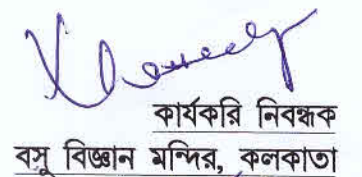 কার্যকরি নিবন্ধক
বসু বিজ্ঞান মন্দির, কলকাতা